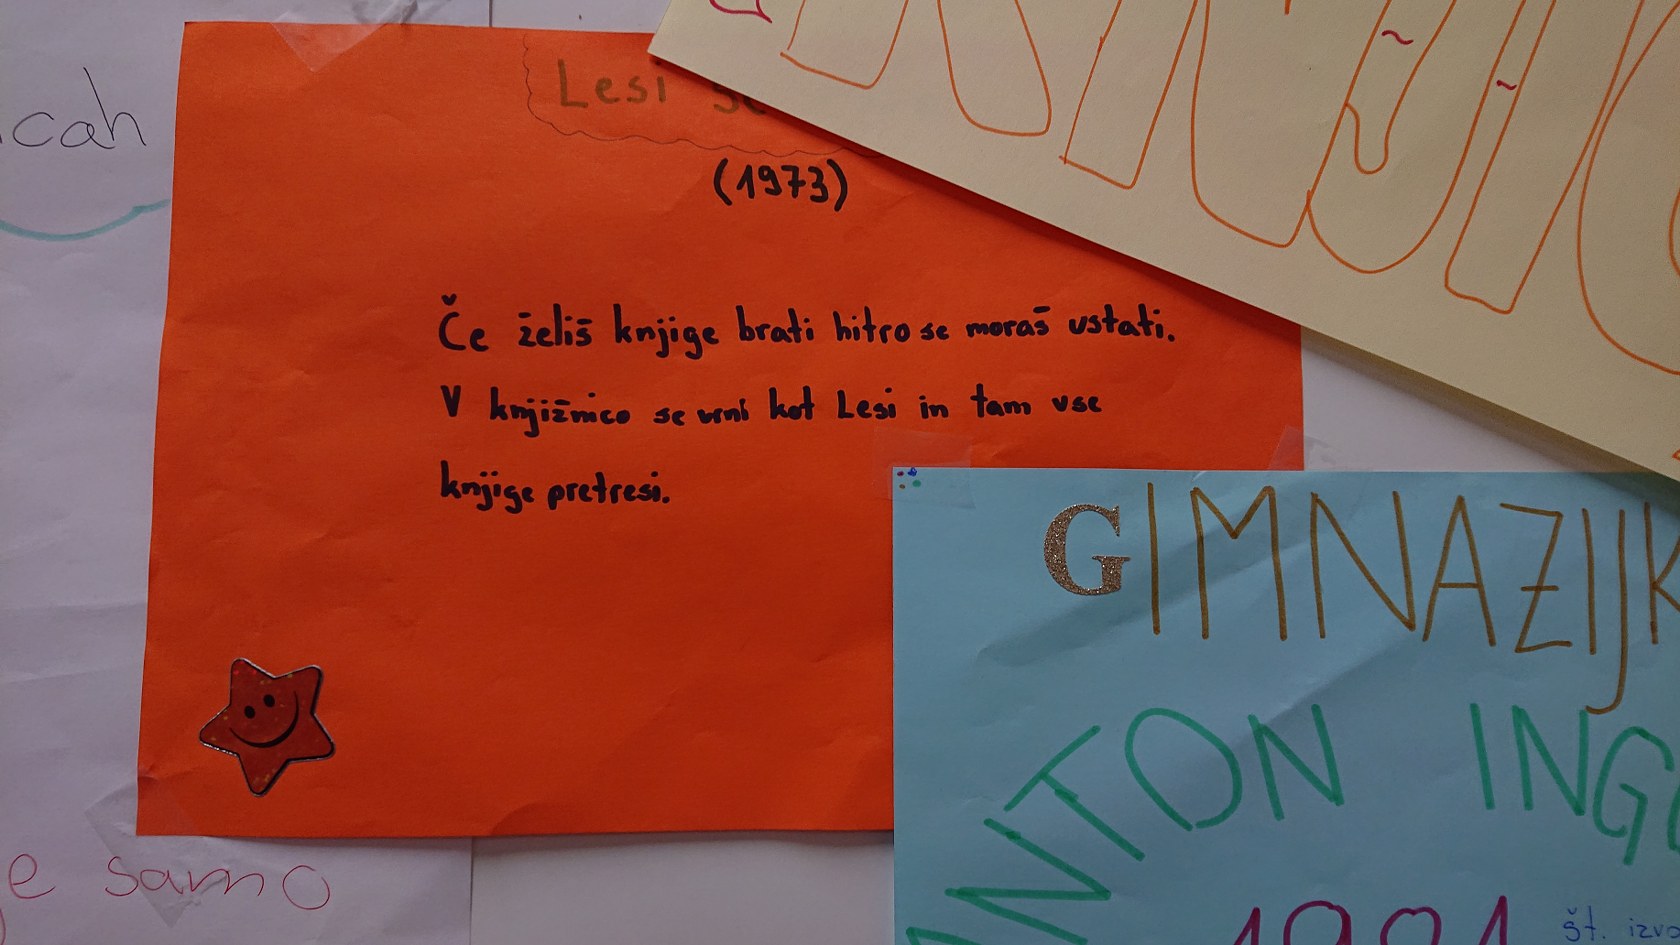 cah
Lesi se
(1973)
Če želiš knjige brati hitro se moraš ustati.
V knjižnico se vrni kot Lesi in tam vse
knjige pretresi.
GIMNAZIJK
ANTON INGO
1981
št. izvo
e samo